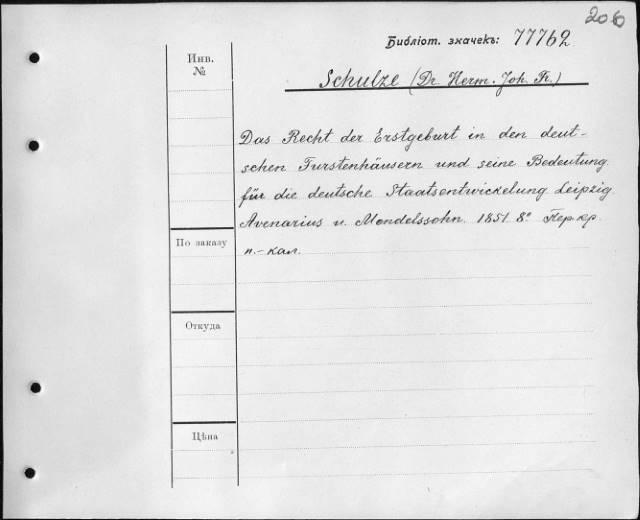 206
Библіот. значекъ: 77762
Инв.
№
Schulze (Dr. Herm. Joh. Fr.)
Das Recht der Erstgeburt in den deut-
schen Furstenhäusern und seine Bedeutung
für die deutsche Staatsentwickelung Leipzig
Avenarius u. Mendelssohn. 1851. 8° Пер. кр.
п.-кал.
По заказу
Откуда
Цѣна